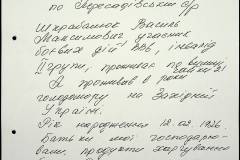 по Передсадівській с/р
Шкрабанюк Василь
Максимович учасник
бойвих дій ВВв, інвалід
II групи, проживає по вулиці
Я проживав в роки
голодомору на Західній
Україні.
Рік народження 18.02.1926
Батьки мої господарю-
вали, продукти харчування